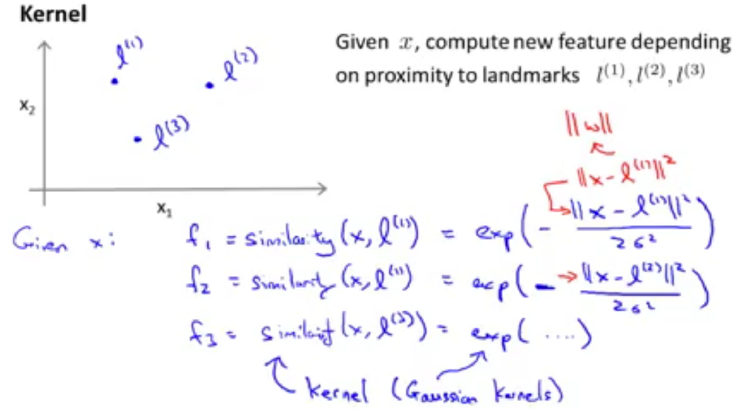 Kernel
Given x, compute new feature depending
on proximity to landmarks l⁽¹⁾, l⁽²⁾, l⁽³⁾
l⁽¹⁾
l⁽²⁾
l⁽³⁾
x₂
x₁
||w||
||x - l⁽¹⁾||²
Given x: f₁ = similarity (x, l⁽¹⁾) = exp(- ||x - l⁽¹⁾||² / 2σ²)
f₂ = similarity (x, l⁽¹⁾) = exp(- ||x - l⁽²⁾||² / 2σ²)
f₃ = similarity (x, l⁽³⁾) = exp( ....)
kernel (Gaussian kernels)